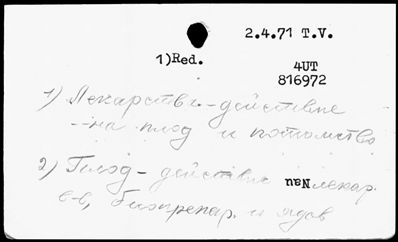 2.4.71 T.V.
1)Red.
4UT
816972
1) Лекарств. - действие
- на плод и потомство
2) Плод - действие Nau лекар.
в-в, биопрепар. и ядов